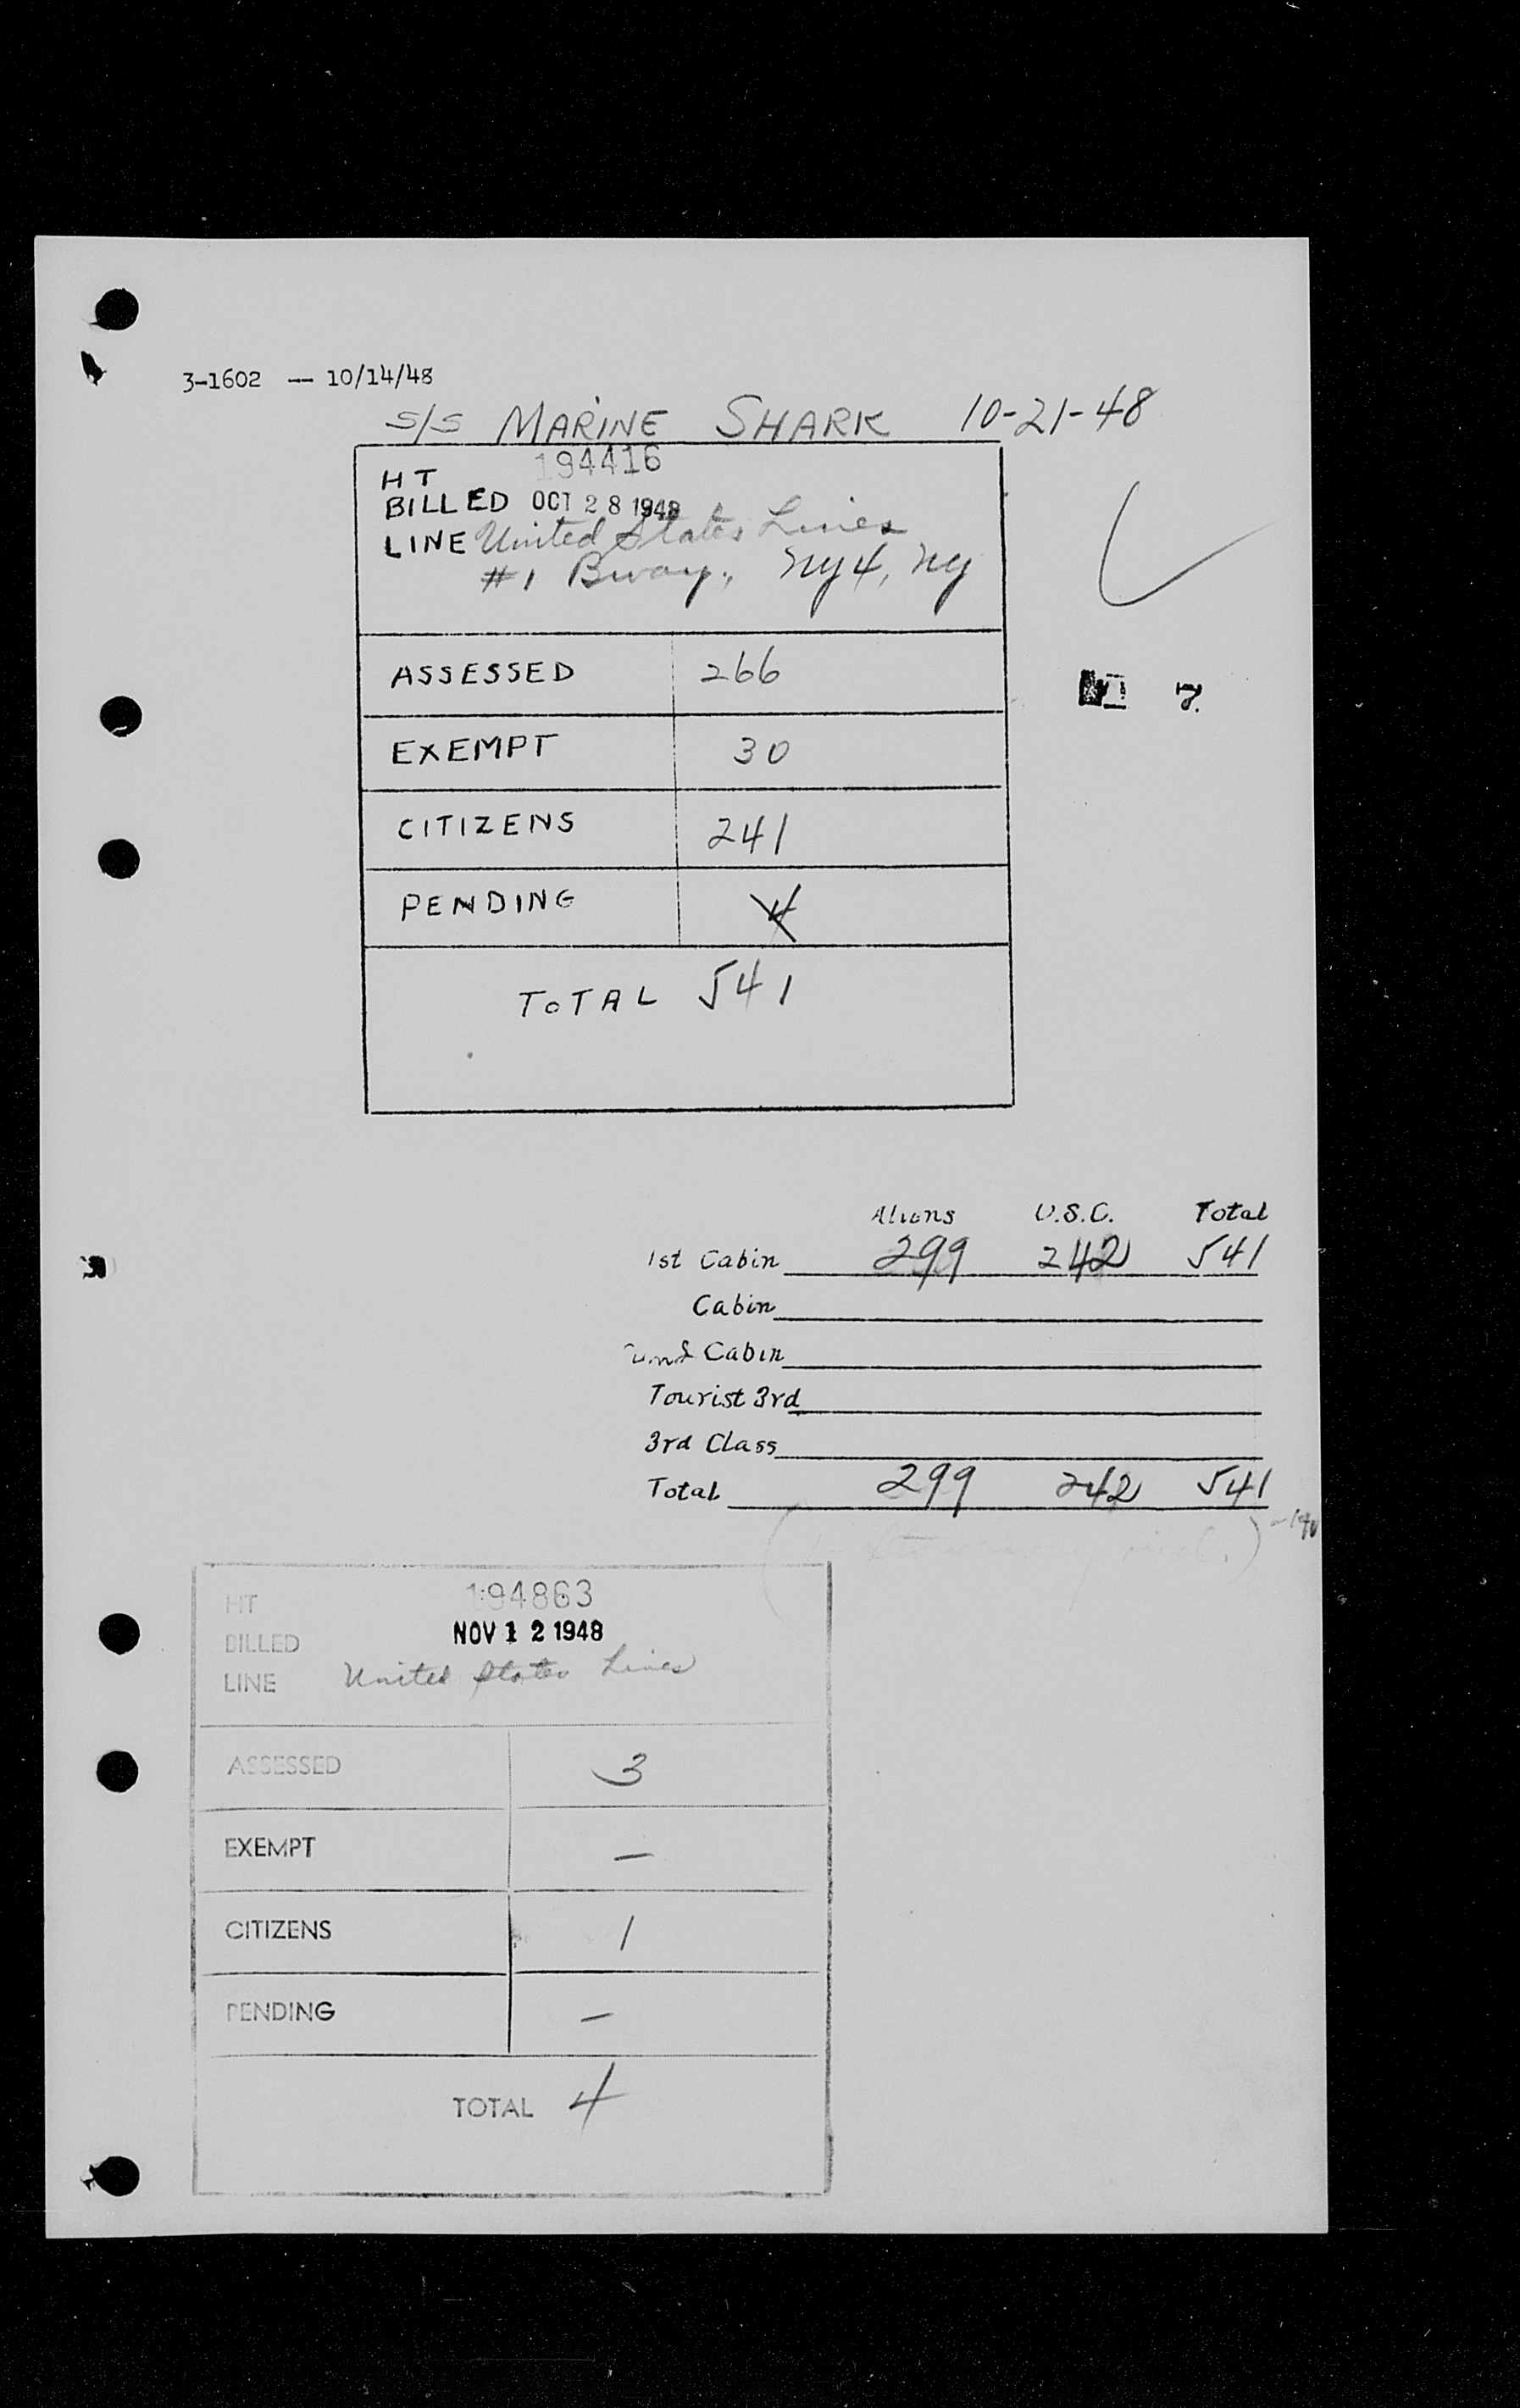 3-1602 -- 10/14/48
S/S MARINE SHARK 10-21-48
194416
HT
BILLED OCT 28 1948
LINE United States Lines
#1 Bway., NY4, NY
ASSESSED 266
EXEMPT 30
CITIZENS 241
PENDING 4
TOTAL 541
Aliens U.S.C. Total
1st Cabin 299 242 541
Cabin
Cabin
Tourist 3rd
3rd Class
Total 299 242 541
HT 194863
BILLED NOV 12 1948
LINE United States Lines
ASSESSED 3
EXEMPT —
CITIZENS 1
PENDING —
TOTAL 4